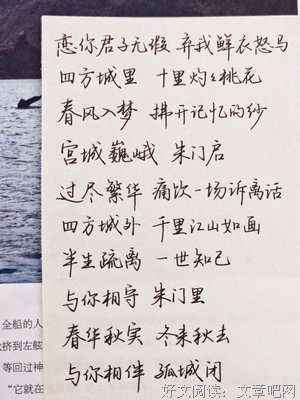 恋你君子无瑕 弃我鲜衣怒马
四方城里 十里灼々桃花
春风入梦 拂开记忆的纱
宫城巍峨 朱门启
过尽繁华 痛饮一场诉离话
四方城外 千里江山如画
半生疏离 一世知己
与你相守 朱门里
春华秋实 冬来秋去
与你相伴 孤城闭
全船的人
挤到左舷
等回过神
“它就在
好文阅读：文章吧网